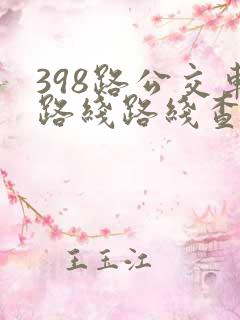 398路公交车
路线路线查
王玉江